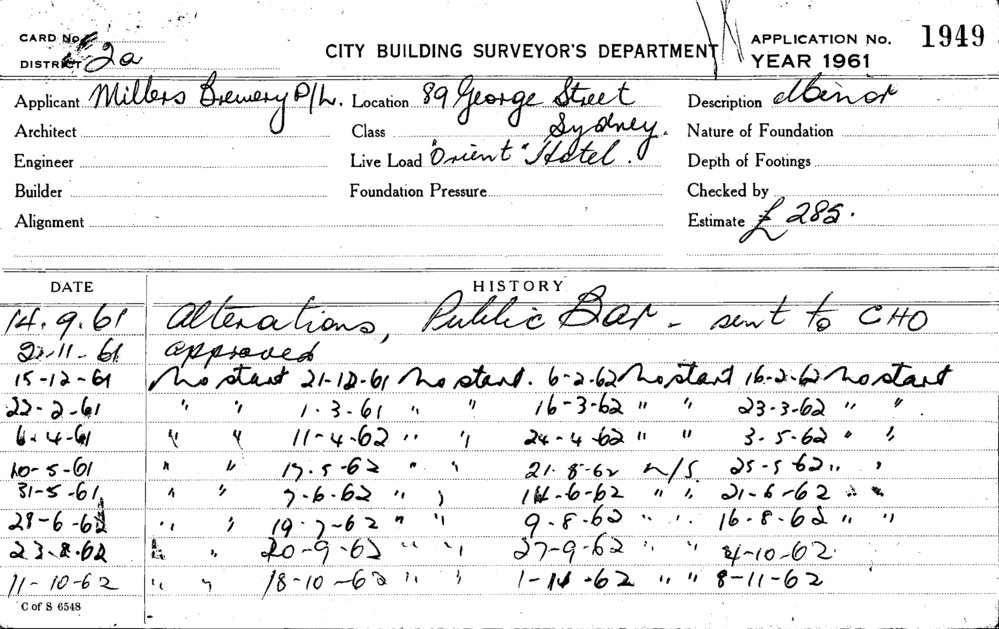 CARD No.
DISTRICT 2a
CITY BUILDING SURVEYOR'S DEPARTMENT
APPLICATION No. 1949
YEAR 1961
Applicant Millers Brewery P/L. Location 89 George Street Description Minor
Architect Class Sydney. Nature of Foundation
Engineer Live Load "Orient" Hotel. Depth of Footings
Builder Foundation Pressure Checked by
Alignment Estimate £ 285.
DATE HISTORY
14.9.61 Alterations, Public Bar - sent to CHO
-11-61 approved
15-12-61 No start 21-12-61 No start. 6-2-62 No start 16-2-62 No start
22-2-61 " " 1-3-61 " " 16-3-62 " " 23-3-62 " "
6-4-61 " " 11-4-62 " " 24-4-62 " " 3-5-62 " "
10-5-61 " " 17-5-62 " " 21-8-62 N/S 25-5-62 " "
31-5-61 " " 7-6-62 " " 14-6-62 " " 21-6-62 " "
28-6-62 " " 19-7-62 " " 9-8-62 " " 16-8-62 " "
23-8-62 " " 20-9-62 " " 27-9-62 " " 4-10-62
11-10-62 " " 18-10-62 " " 1-11-62 " " 8-11-62
C of S 6548